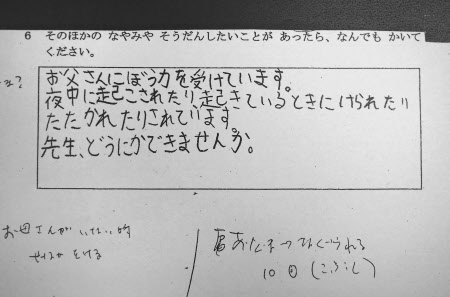 6 そのほかの なやみや そうだんしたいことが あったら、なんでも かいて
ください。
お父さんにぼう力を受けています。
夜中に起こされたり、起きているときにけられたり
たたかれたりされています。
先生、どうにかできませんか。
お母さんがいない時
あたまをなぐられる
10回(こぶし)